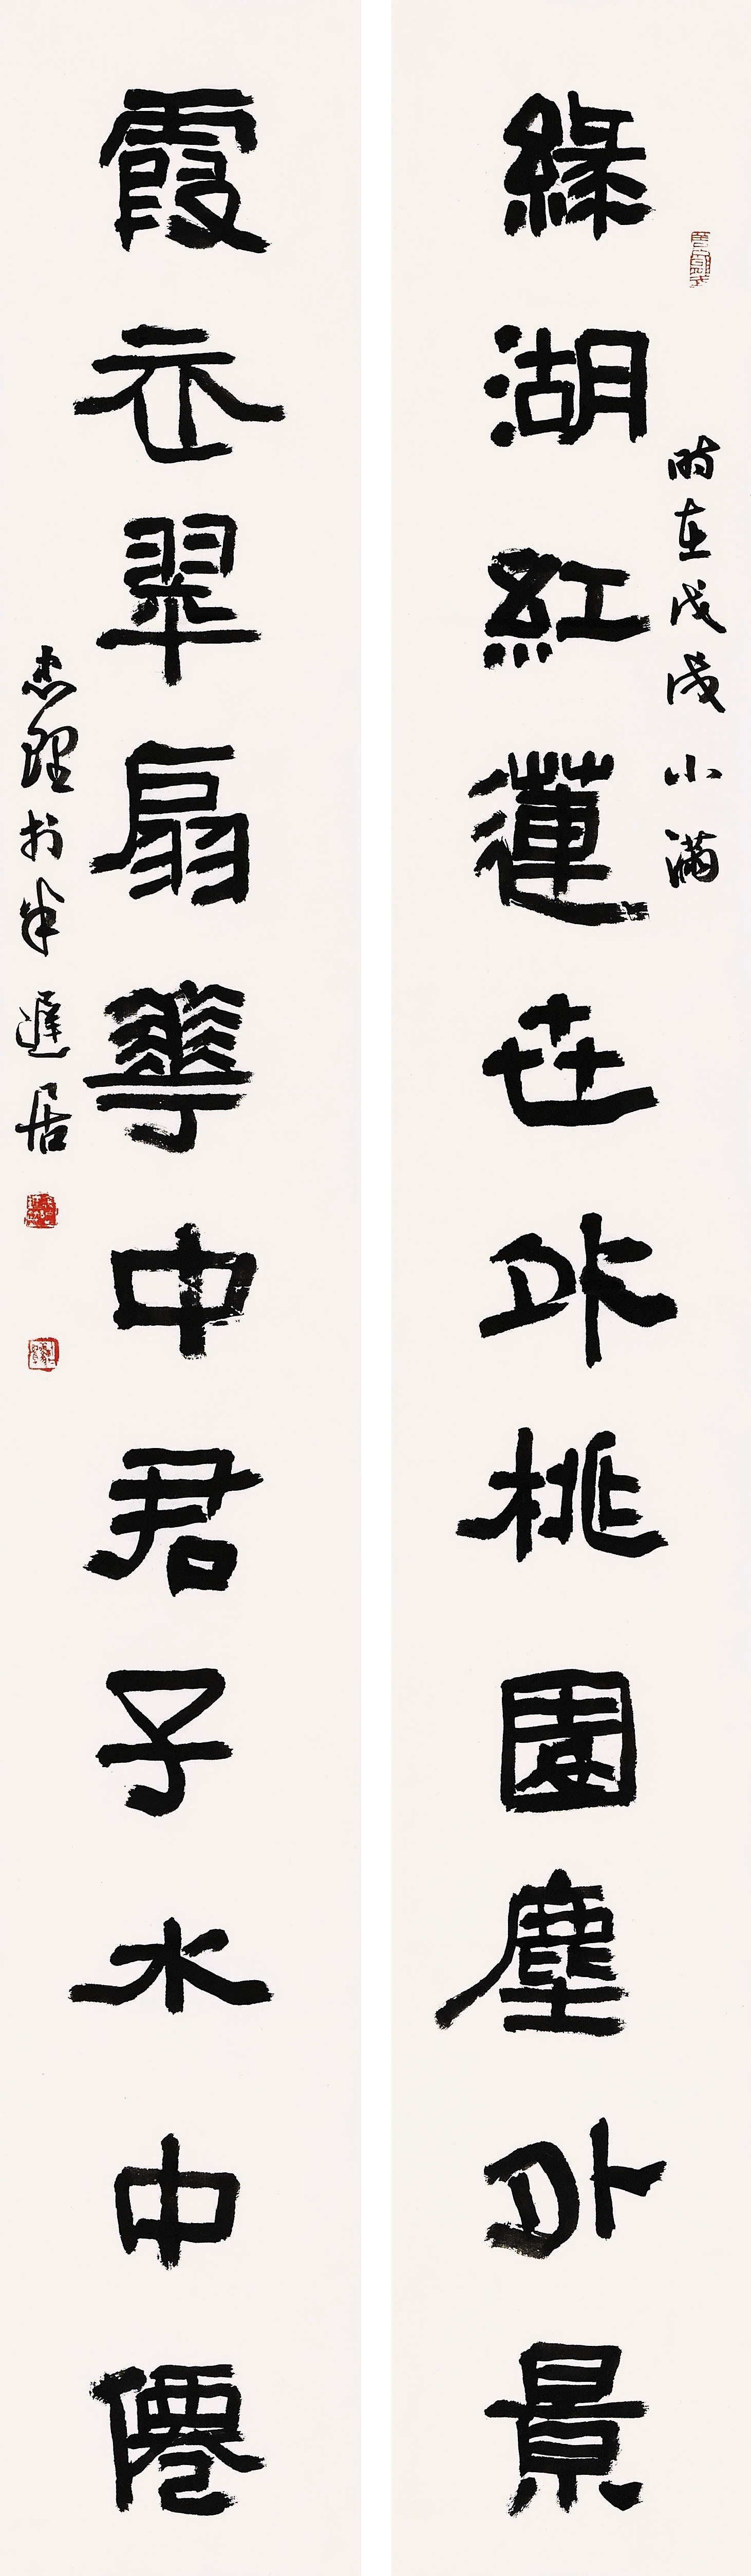 綠湖紅蓮世外桃園塵外景
時在戊戌小滿
霞衣翠扇華中君子水中僊
理於半遲居